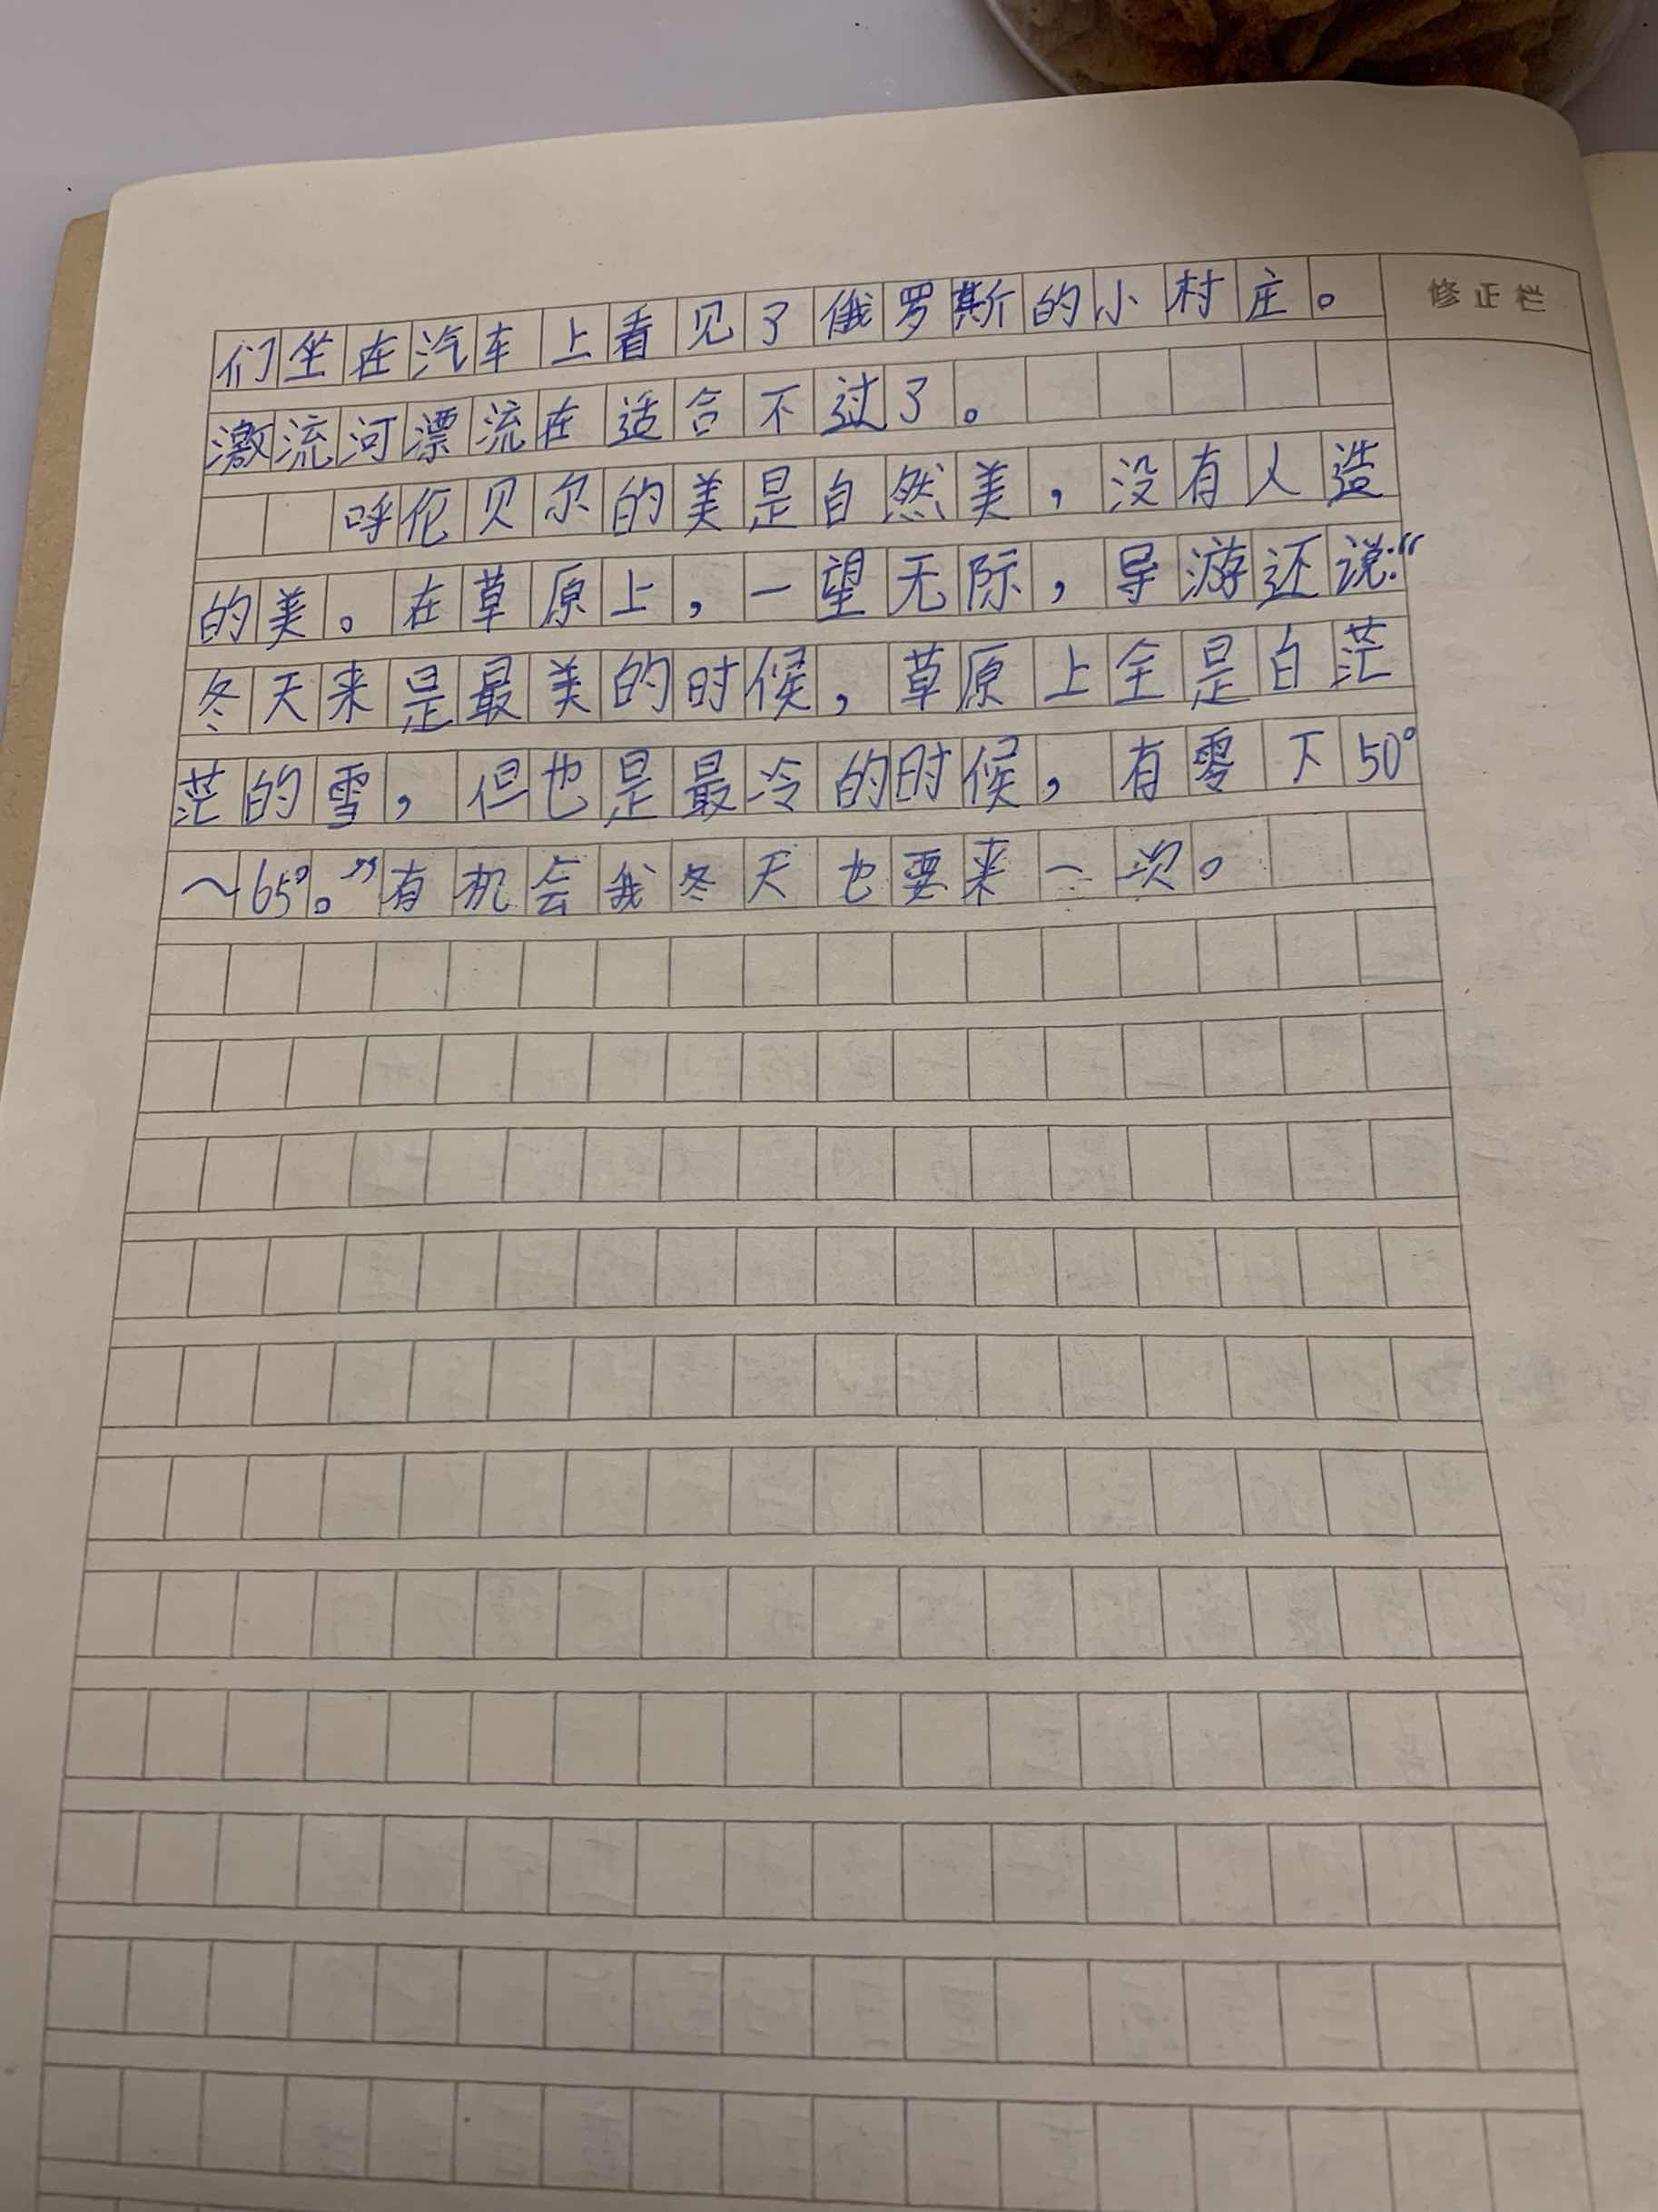 们坐在汽车上看见了俄罗斯的小村庄。
修正栏
激流河漂流在适合不过了。
呼伦贝尔的美是自然美，没有人造
的美。在草原上，一望无际，导游还说：“
冬天来是最美的时候，草原上全是白茫
茫的雪，但也是最冷的时候，有零下50°
～65°。”有机会我冬天也要来一次。